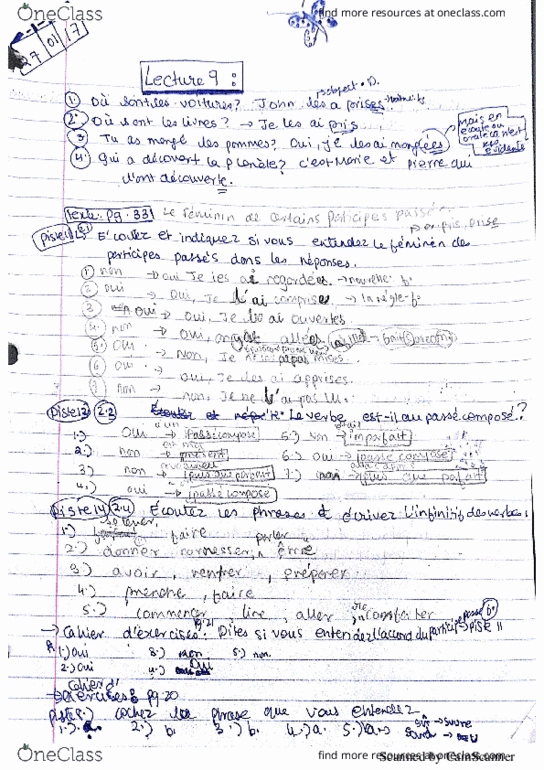 find more resources at oneclass.com
OneClass
27 01 17
Lecture 9 :
① Où sont les voitures? John les a prises
② Où sont les livres? → Je les ai pris
③ Tu as mangé les pommes? Oui, je les ai mangées
Mais en
④ Qui a découvert la planète? c'est Marie et Pierre qui
l'ont découverte.
Texte: Pg. 33 Le féminin de certains participes passé
Piste 11 2.1 Écoutez et indiquez si vous entendez le féminin des
participes passés dans les réponses.
① non → oui Je les ai regardées.
② oui → Oui, Je l'ai comprise → la règle - f.
3. oui → oui, Je les ai ouvertes
4. non → oui, on y est allées
5. oui → non, Je ne les ai pas mises
6. oui → oui, Je les ai apprises.
7. non → non, Je ne l'ai pas lu.
Piste 12 2.2 Le verbe est-il au passé composé?
1.) Oui → Passé composé 5.) non imparfait
2.) non → présent 6.) oui → passé composé
3) non → plus que parfait 7.) non plus que parfait
4.) oui → passé composé
Piste 14 2.4 Écoutez les phrases et écrivez l'infinitif des verbes.
1.) faire parler
2.) donner être
3) avoir, rentrer, préparer
4.) prendre, faire
5.) commencer lire, aller
→ Cahier d'exercises: Pg 21 Dites si vous entendez l'accord du participe passé Piste 11
1.) Oui 3.) non 5.) non.
2.) Oui 4.) Oui
Cahier d'
exercises Pg 20
Piste cochez la phrase que vous entendez
1.) a. 2.) b. 3.) b. 4.) a. 5.) a
OneClass
find more resources at oneclass.com
Scanned by CamScanner